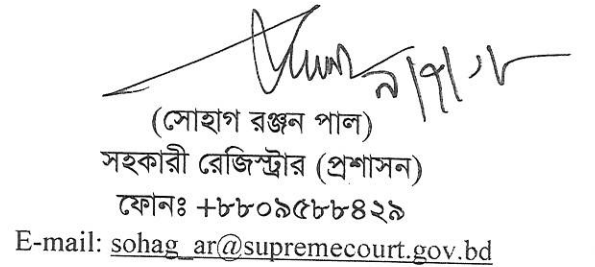 (সোহাগ রঞ্জন পাল)
সহকারী রেজিস্ট্রার (প্রশাসন)
ফোনঃ +৮৮০৯৫৮৮৪২৯
E-mail: sohag_ar@supremecourt.gov.bd